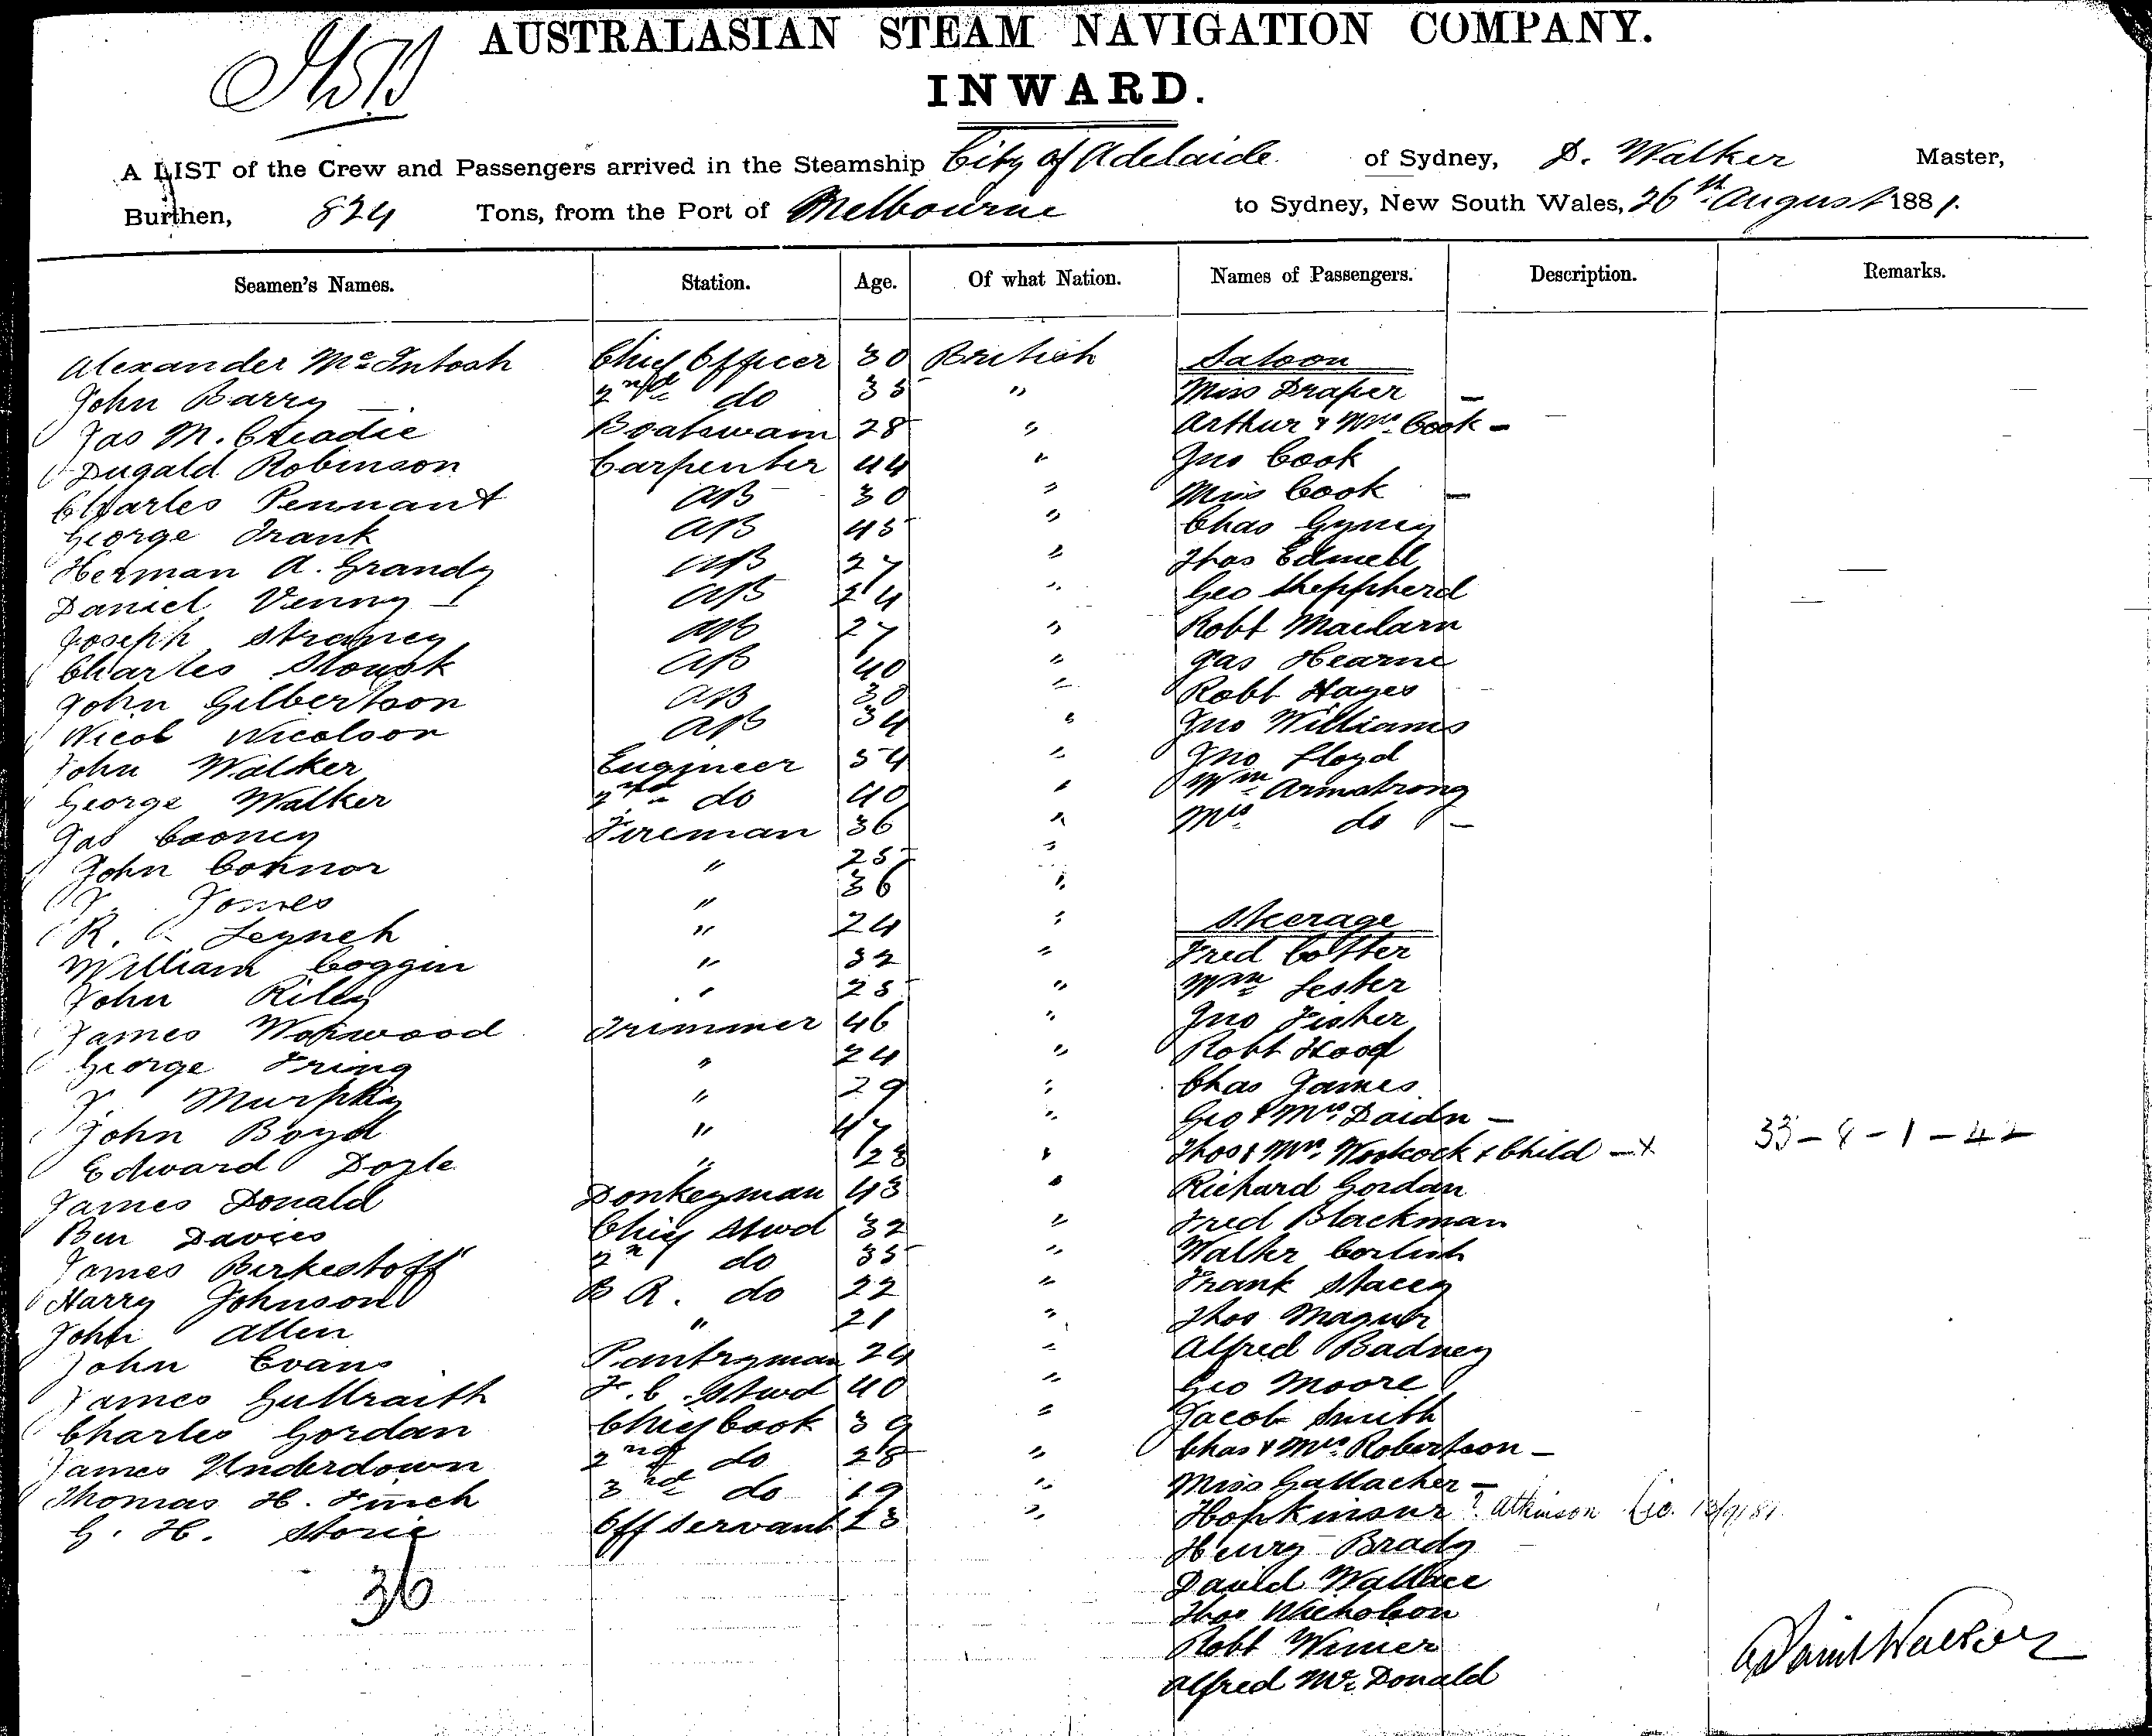 AUSTRALASIAN STEAM NAVIGATION COMPANY.
INWARD.
A LIST of the Crew and Passengers arrived in the Steamship City of Adelaide of Sydney, D. Walker Master,
Burthen, 824 Tons, from the Port of Melbourne to Sydney, New South Wales, 26th August 1881.
Seamen's Names. Station. Age. Of what Nation. Names of Passengers. Description. Remarks.
Alexander McIntosh Chief Officer 30 British Saloon
John Barry 2nd do 35 " Miss Draper —
Jas M. Creadie Boatswain 28 " Arthur & Mrs Cook —
Dugald Robinson Carpenter 44 " Jno Cook
Charles Pennant AB 30 " Miss Cook —
George Frank AB 45 " Chas
Herman A. Grandy AB 27 " Thos
Daniel Venny AB 24 " Geo Sheppherd
Joseph Straney AB 27 " Robt Maclarn
Charles AB 40 " Jas Hearne
John Gilbertson AB 30 " Robt Hayes
Nicol Nicolson AB 34 " Jno Williams
John Walker Engineer 54 " Jno Lloyd
George Walker 2nd do 40 " Wm Armstrong
Jas Cooney Fireman 36 " Mrs do —
John Connor " 25 "
J. Jones " 36 "
R. Leynch " 24 " Steerage
William Coggin " 32 " Fred Cotter
John Riley " 25 " Wm Lester
James Trimmer 46 " Jno Fisher
George Pring " 24 " Robt Hood
J. Murphy " 29 " Chas James
John Boyd " 47 " Geo & Mrs —
Edward Doyle " 23 " Thos & Mrs & Child — x 33-8-1-42
James Donald Donkeyman 43 " Richard Gordan
Ben Davies Chief Stwd 32 " Fred Blackman
James Berkestoff 2n do 35 " Walter Corlish
Harry Johnson B R. do 22 " Frank Stacey
John Allen " 21 " Thos
John Evans Pantryman 24 " Alfred Badney
James Gullraith F. C. Stwd 40 " Geo Moore
Charles Gordan Chief Cook 39 " Jacob Smith
James Underdown 2nd do 28 " Chas & Mrs Robertson —
Thomas H. Finch 3rd do 19 " Miss Gallacher —
G. H. Storie Off Servant 23 " Hopkinson ? Atkinson
Henry Brady
36 David Wallace
Thos Nicholson
Robt Winier
Alfred McDonald
David Walker